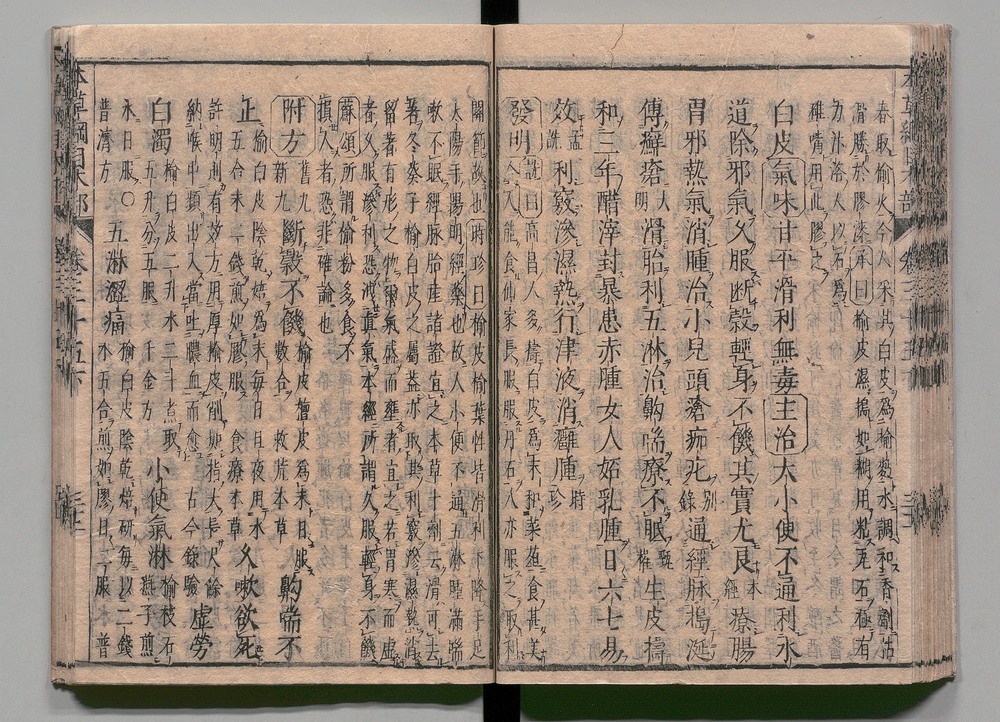 春取榆火今人采其白皮為榆麪水調和香劑粘
滑勝於膠漆承曰榆皮濕搗如糊用粘瓦石極有
力汴洛人以石為
碓嘴用此膠之
白皮氣味甘平滑利無毒主治大小便不通利水
道除邪氣久服斷穀輕身不饑其實尤良本經療腸
胃邪熱氣消腫治小兒頭瘡痂疕別錄通經脉搗涎
傅癬瘡大明滑胎利五淋治齁喘療不眠甄權生皮擣
和三年醋滓封暴患赤腫女人妬乳腫日六七易
效孟詵利竅滲濕熱行津液消癰腫時珍
發明詵曰高昌人多擣白皮為末和菜菹食甚美
令人能食仙家長服服丹石人亦服之取利
關節故也時珍曰榆皮榆葉性皆滑利下降手足
太陽手陽明經藥也故人小便不通五淋腫滿喘
嗽不眠經脉胎產諸證宜之本草十劑云滑可去
著冬葵子榆白皮之屬蓋亦取其利竅滲濕熱消
留著有形之物爾氣盛而壅者宜之若胃寒而虛
者久服滲利恐洩真氣本經所謂久服輕身不饑
蘇頌所謂榆粉多食不
損人者恐非確論也
附方舊九新九斷穀不饑榆皮檀皮為末日服數合救荒本草齁喘不
止榆白皮陰乾焙為末每日旦夜用水五合末二錢煎如膠服食療本草久嗽欲死
許明則有效方用厚榆皮削如指大長尺餘
納喉中頻出入當吐膿血而愈古今錄驗虛勞
白濁榆白皮二升水二斗煮取五升分五服千金方小便氣淋榆枝石燕子煎
水日服普濟方○五淋澀痛榆白皮陰乾焙研每以二錢水五合煎如膠日二服普
本草綱目木部 卷三十五下